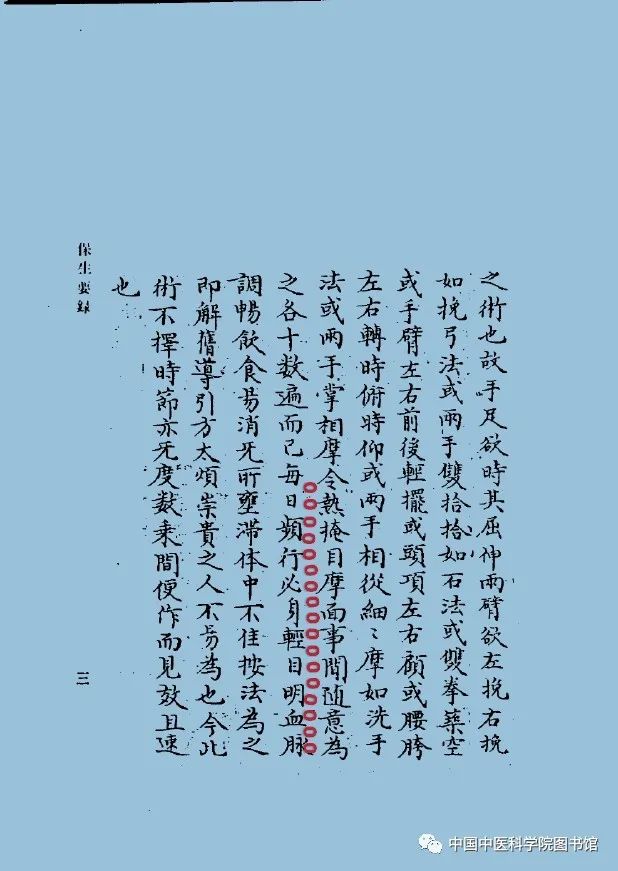 之術也故手足欲時其屈伸兩臂欲左挽右挽
如挽弓法或兩手雙拾拾如石法或雙拳築空
或手臂左右前後輕擺或頭項左右顧或腰胯
左右轉時俯時仰或兩手相從細〻摩如洗手
法或兩手掌相摩令熱掩目摩面事間随意為
之各十数遍而已每日頻行必身輕目明血脉
調暢飲食易消旡所壅滞体中不佳按法為之
即解舊導引方太煩崇貴之人不易為也今此
術不擇時節亦旡度数乘間便作而見效且速
也
保生要録
三
中国中医科学院图书馆